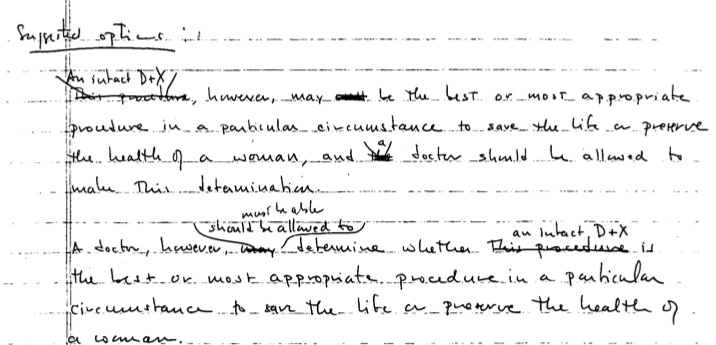 Suggested options:
An intact D+X
This procedure, however, may not be the best or most appropriate
procedure in a particular circumstance to save the life or preserve
the health of a woman, and a doctor should be allowed to
make this determination.
must be able
should be allowed to an intact D+X
A doctor, however, may determine whether this procedure is
the best or most appropriate procedure in a particular
circumstance to save the life or preserve the health of
a woman.